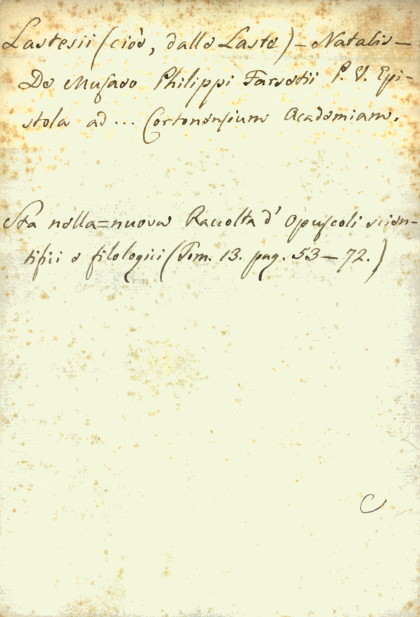 Lastesii (cioè, dalle Laste) – Natalis –
De Musaeo Philippi Farsetii P. V. Epi-
stola ad ... Cortonensium Academiam.
Sta nella = nuova Raccolta d' Opuscoli scien-
tifici e filologici (Tom. 13. pag. 53 – 72.)
C